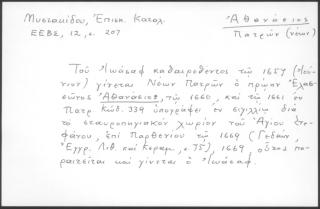 Μυστακίδου, Ἐπισκ. Κατάλ.
ΕΕΒΣ, 12, σ. 207
Ἀθανάσιος
Πατρῶν (νέων)
Τοῦ Ἰωάσαφ καθαιρεθέντος τῷ 1657
γίνεται Νέων Πατρῶν ὁ πρώην Ἐλασ-
σῶνος Ἀθανάσιος, τῷ 1660, καὶ τῷ 1661 ἐν
Πατρ. Κώδ. 339 ὑπογράφει ἐν σιγιλλίῳ διὰ
τὸ σταυροπηγιακὸν χωρίον τοῦ Ἁγίου Στε-
φάνου, ἐπὶ Παρθενίου τῷ 1669 (Γεδεὼν
Ἔγγρ. Λιθ. καὶ Κεραμ., σ. 75), 1669, οὗτος πα-
ραιτεῖται καὶ γίνεται ὁ Ἰωάσαφ.